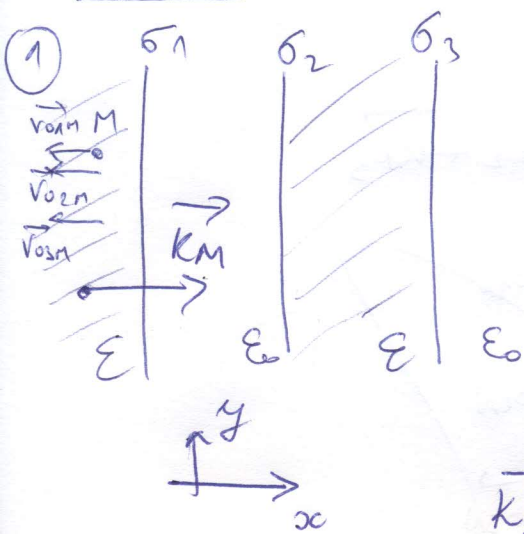 1
σ1 σ2 σ3
r01M M
r02M
r03M
KM
ε ε0 ε ε0
y
x
K